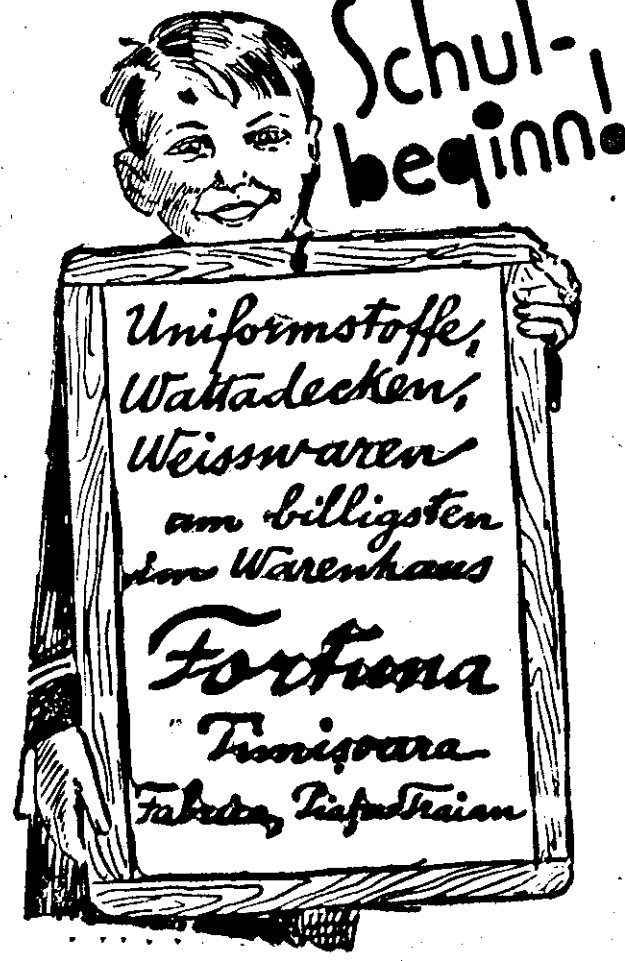 Schul-
beginn!
Uniformstoffe,
Wattadecken,
Weisswaren
am billigsten
im Warenhaus
Fortuna
Timișoara
Fabrica, Piața Traian